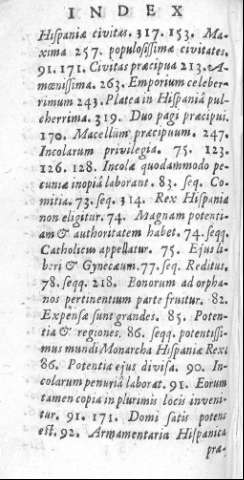 INDEX
Hispaniæ civitas. 317. 153. Ma-
xima 257. populosissimæ civitates.
91. 171. Civitas præcipua 213. A-
mœnissima. 263. Emporium celeber-
rimum 243. Platea in Hispaniâ pul-
cherrima. 319. Duo pagi præcipui.
170. Macellum præcipuum. 247.
Incolarum privilegia. 75. 123.
126. 128. Incolæ quodammodo pe-
cuniæ inopiâ laborant. 83. seq. Co-
mitia. 73. seq. 314. Rex Hispaniæ
non eligitur. 74. Magnam potenti-
am & authoritatem habet. 74. seqq.
Catholicus appellatur. 75. Ejus li-
beri & Gynecæum. 77. seq. Reditus.
78. seqq. 218. Bonorum ad orpha-
nos pertinentium parte fruitur. 82.
Expensæ sunt grandes. 85. Poten-
tia & regiones. 86. seqq. potentissi-
mus mundi Monarcha Hispaniæ Rex.
86. Potentia ejus divisa. 90. In-
colarum penuriâ laborat. 91. Eorum
tamen copia in plurimis locis inveni-
tur. 91. 171. Domi satis potens
est. 92. Armamentaria Hispanica
præ-